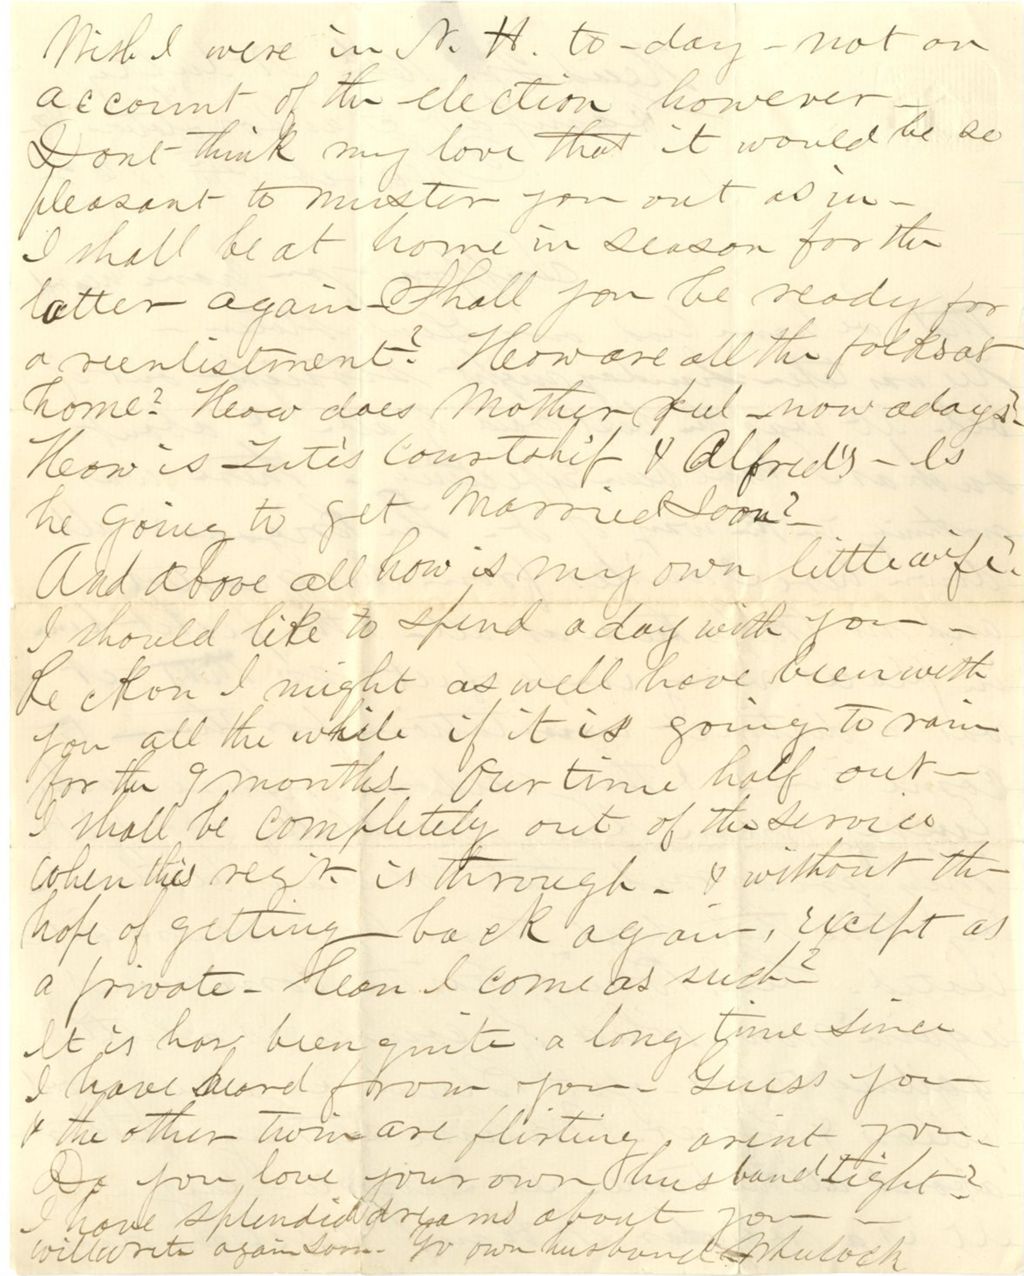 Wish I were in N. H. to-day - not on
account of the election however -
Dont think my love that it would be so
pleasant to muster you out as in -
I shall be at home in season for the
latter again - Shall you be ready for
a reenlistment? How are all the folks at
home? How does Mother feel - now adays? -
How is Lute's Courtship & Alfred's - Is
he going to get Married Soon? -
And above all how is my own little wife?
I should like to spend a day with you -
Reckon I might as well have been with
you all the while if it is going to rain
for the 9 months - Our time half out -
I shall be completely out of the service
when this regt. is through - & without the
hope of getting back again, except as
a private - Can I come as such?
It is has been quite a long time since
I have heard from you - Guess you
& the other twin are flirting, arint you -
Do you love your own husband tight?
I have splendid dreams about you -
will write again soon - Yr own husband